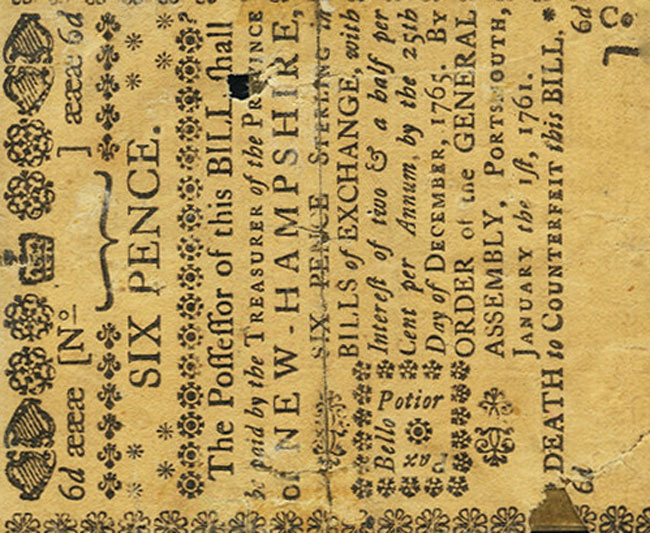 6d æææ [No ] æææ 6d
SIX PENCE.
The Poſſeſſor of this BILL ſhall
be paid by the TREASURER of the PROVINCE
of NEW-HAMPSHIRE,
SIX PENCE STERLING in
BILLS of EXCHANGE, with
Intereſt of two & a half per
Cent per Annum, by the 25th
Day of DECEMBER, 1765. By
ORDER of the GENERAL
ASSEMBLY, PORTSMOUTH,
JANUARY the 1ſt, 1761.
Bello Potior
DEATH to COUNTERFEIT this BILL.
6d 6d
Co.